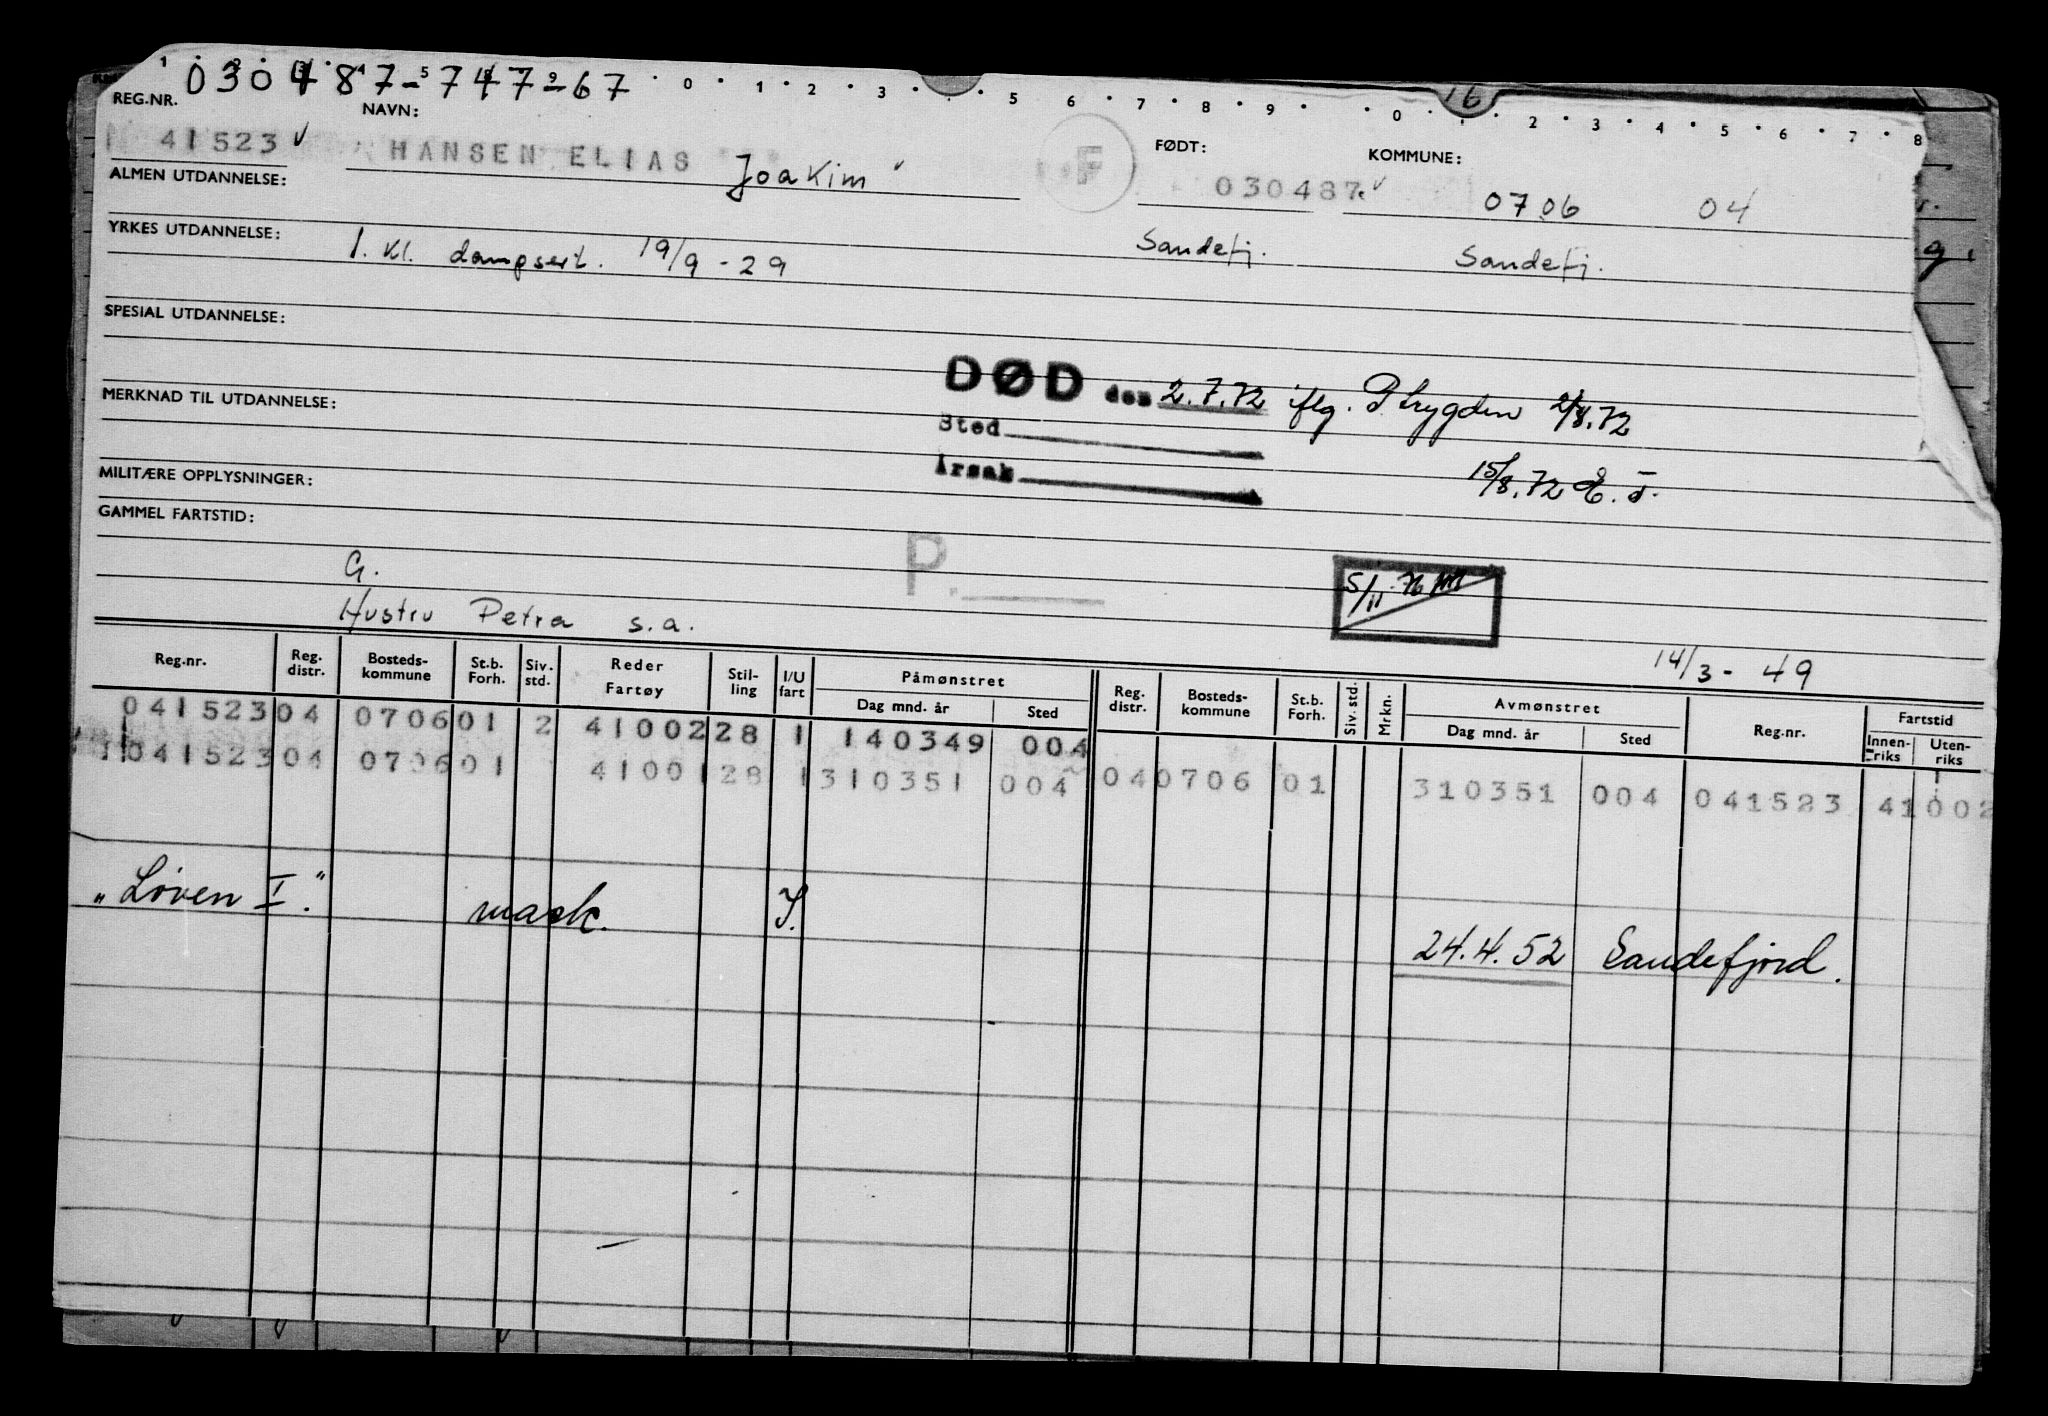 030487-747-67
1 2 3 4 5 9 0 1 2 3 5 6 7 8 9 0 2 3 4 5 6 7 8
16
REG.NR. NAVN: FØDT: KOMMUNE:
41523 HANSEN ELIAS Joakim F 030487 0706 04
ALMEN UTDANNELSE:
YRKES UTDANNELSE: 1. kl. dampsert. 19/9-29 Sandefj. Sandefj.
SPESIAL UTDANNELSE:
DØD den 2.7.72 iflg. P trygden 2/8.72
MERKNAD TIL UTDANNELSE:
Sted
Årsak 15/8.72 E. T.
MILITÆRE OPPLYSNINGER:
GAMMEL FARTSTID:
G. P. 5/11-76
Hustru Petra s.a.
14/3-49
Reg.nr. Reg. distr. Bosteds-kommune St.b. Forh. Siv. std. Reder Fartøy Stil-ling I/U fart Påmønstret Dag mnd. år Sted Reg. distr. Bosteds-kommune St.b. Forh. Siv. std. Mrkn. Avmønstret Dag mnd. år Sted Reg.nr. Fartstid Innen-riks Uten-riks
041523 04 0706 01 2 41002 28 1 140349 004
041523 04 0706 01 41001 28 1 310351 004 04 0706 01 310351 004 041523 41002
„Løven I." mask. I. 24.4.52 Sandefjord.